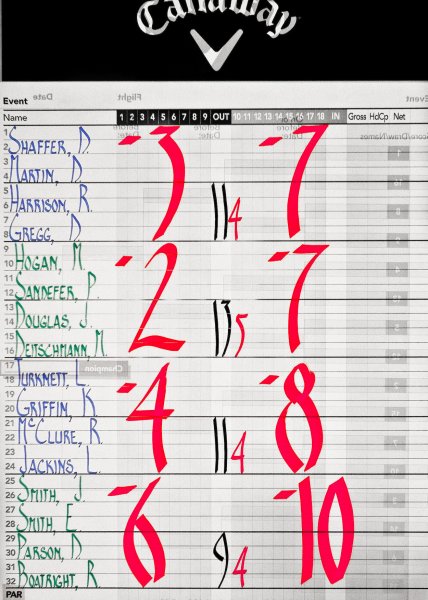 Callaway
Event
Date
Flight
Event
Name 1 2 3 4 5 6 7 8 9 OUT 10 11 12 13 14 15 16 17 18 IN Gross HdCp Net
1
2 SHAFFER, D.
3
4 MARTIN, D.
5
6 HARRISON, R.
7
8 GREGG, D.
-3 11 4 -7
9
10 HOGAN, M.
11
12 SANDEFER, P.
13
14 DOUGLAS, J.
15
16 DEITSCHMANN, M.
-2 13 5 -7
17
18 TURKNETT, L.
Champion
19
20 GRIFFIN, K.
21
22 McCLURE, R.
23
24 JACKINS, L.
-4 11 4 -8
25
26 SMITH, J.
27
28 SMITH, E.
29
30 PARSON, D.
31
32 BOATRIGHT, R.
-6 9 4 -10
PAR